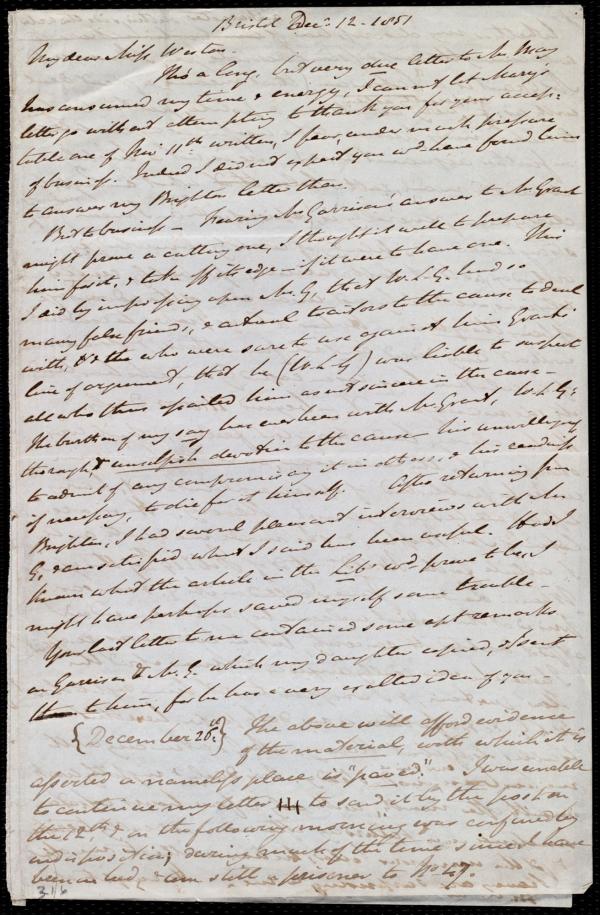 Bristol Decr. 12 - 1851
My dear Miss Weston -
This a long, but very due letter to Mr. May
has consumed my time & energy, I cannot let Mary's
letter go without attempting to thank you for your accep-
table one of Novr. 11th written, I fear, under much pressure
of business. Indeed I did not expect you wd. have found time
to answer my Brighton letter then.
But to business - Fearing Mr. Garrison's answer to Mr. Grant
might prove a cutting one, I thought it well to prepare
him for it, & take off its edge - if it were to have one. This
I did by impressing upon Mr. G, that W. L. G. had so
many false friends, & actual traitors to the cause to deal
with, & who were sure to use against him Grant's
line of argument, that he (W. L. G) was liable to suspect
all who thus assailed him as not sincere in the cause -
The burthen of my say has ever been with Mr. Grant, W. L. G's
thorough, & unselfish devotion to the cause - his unwillingness
to admit of any compromising it in others, & his readiness
if necessary, to die for it himself. After returning from
Brighton, I had several pleasant interviews with Mr.
G, & am satisfied what I said has been useful. Had I
known what the article in the Libr. wd. prove to be, I
might have perhaps saved myself some trouble -
Your last letter to me contained some apt remarks
on Garrison & Mr. G. which my daughter copied, & I sent
to him, for he has a very exalted idea of you -
{December 26th.} The above will afford evidence
of the material, with which it is
asserted a nameless place is "paved." I was unable
to continue my letter to send it by the post on
the 12th & on the following morning was confined by
indisposition; during much of the time since I have
been in bed, & am still a prisoner to No. 47.
316